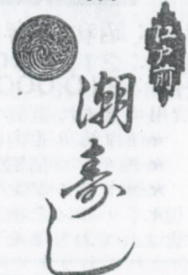 江戸前
潮寿し